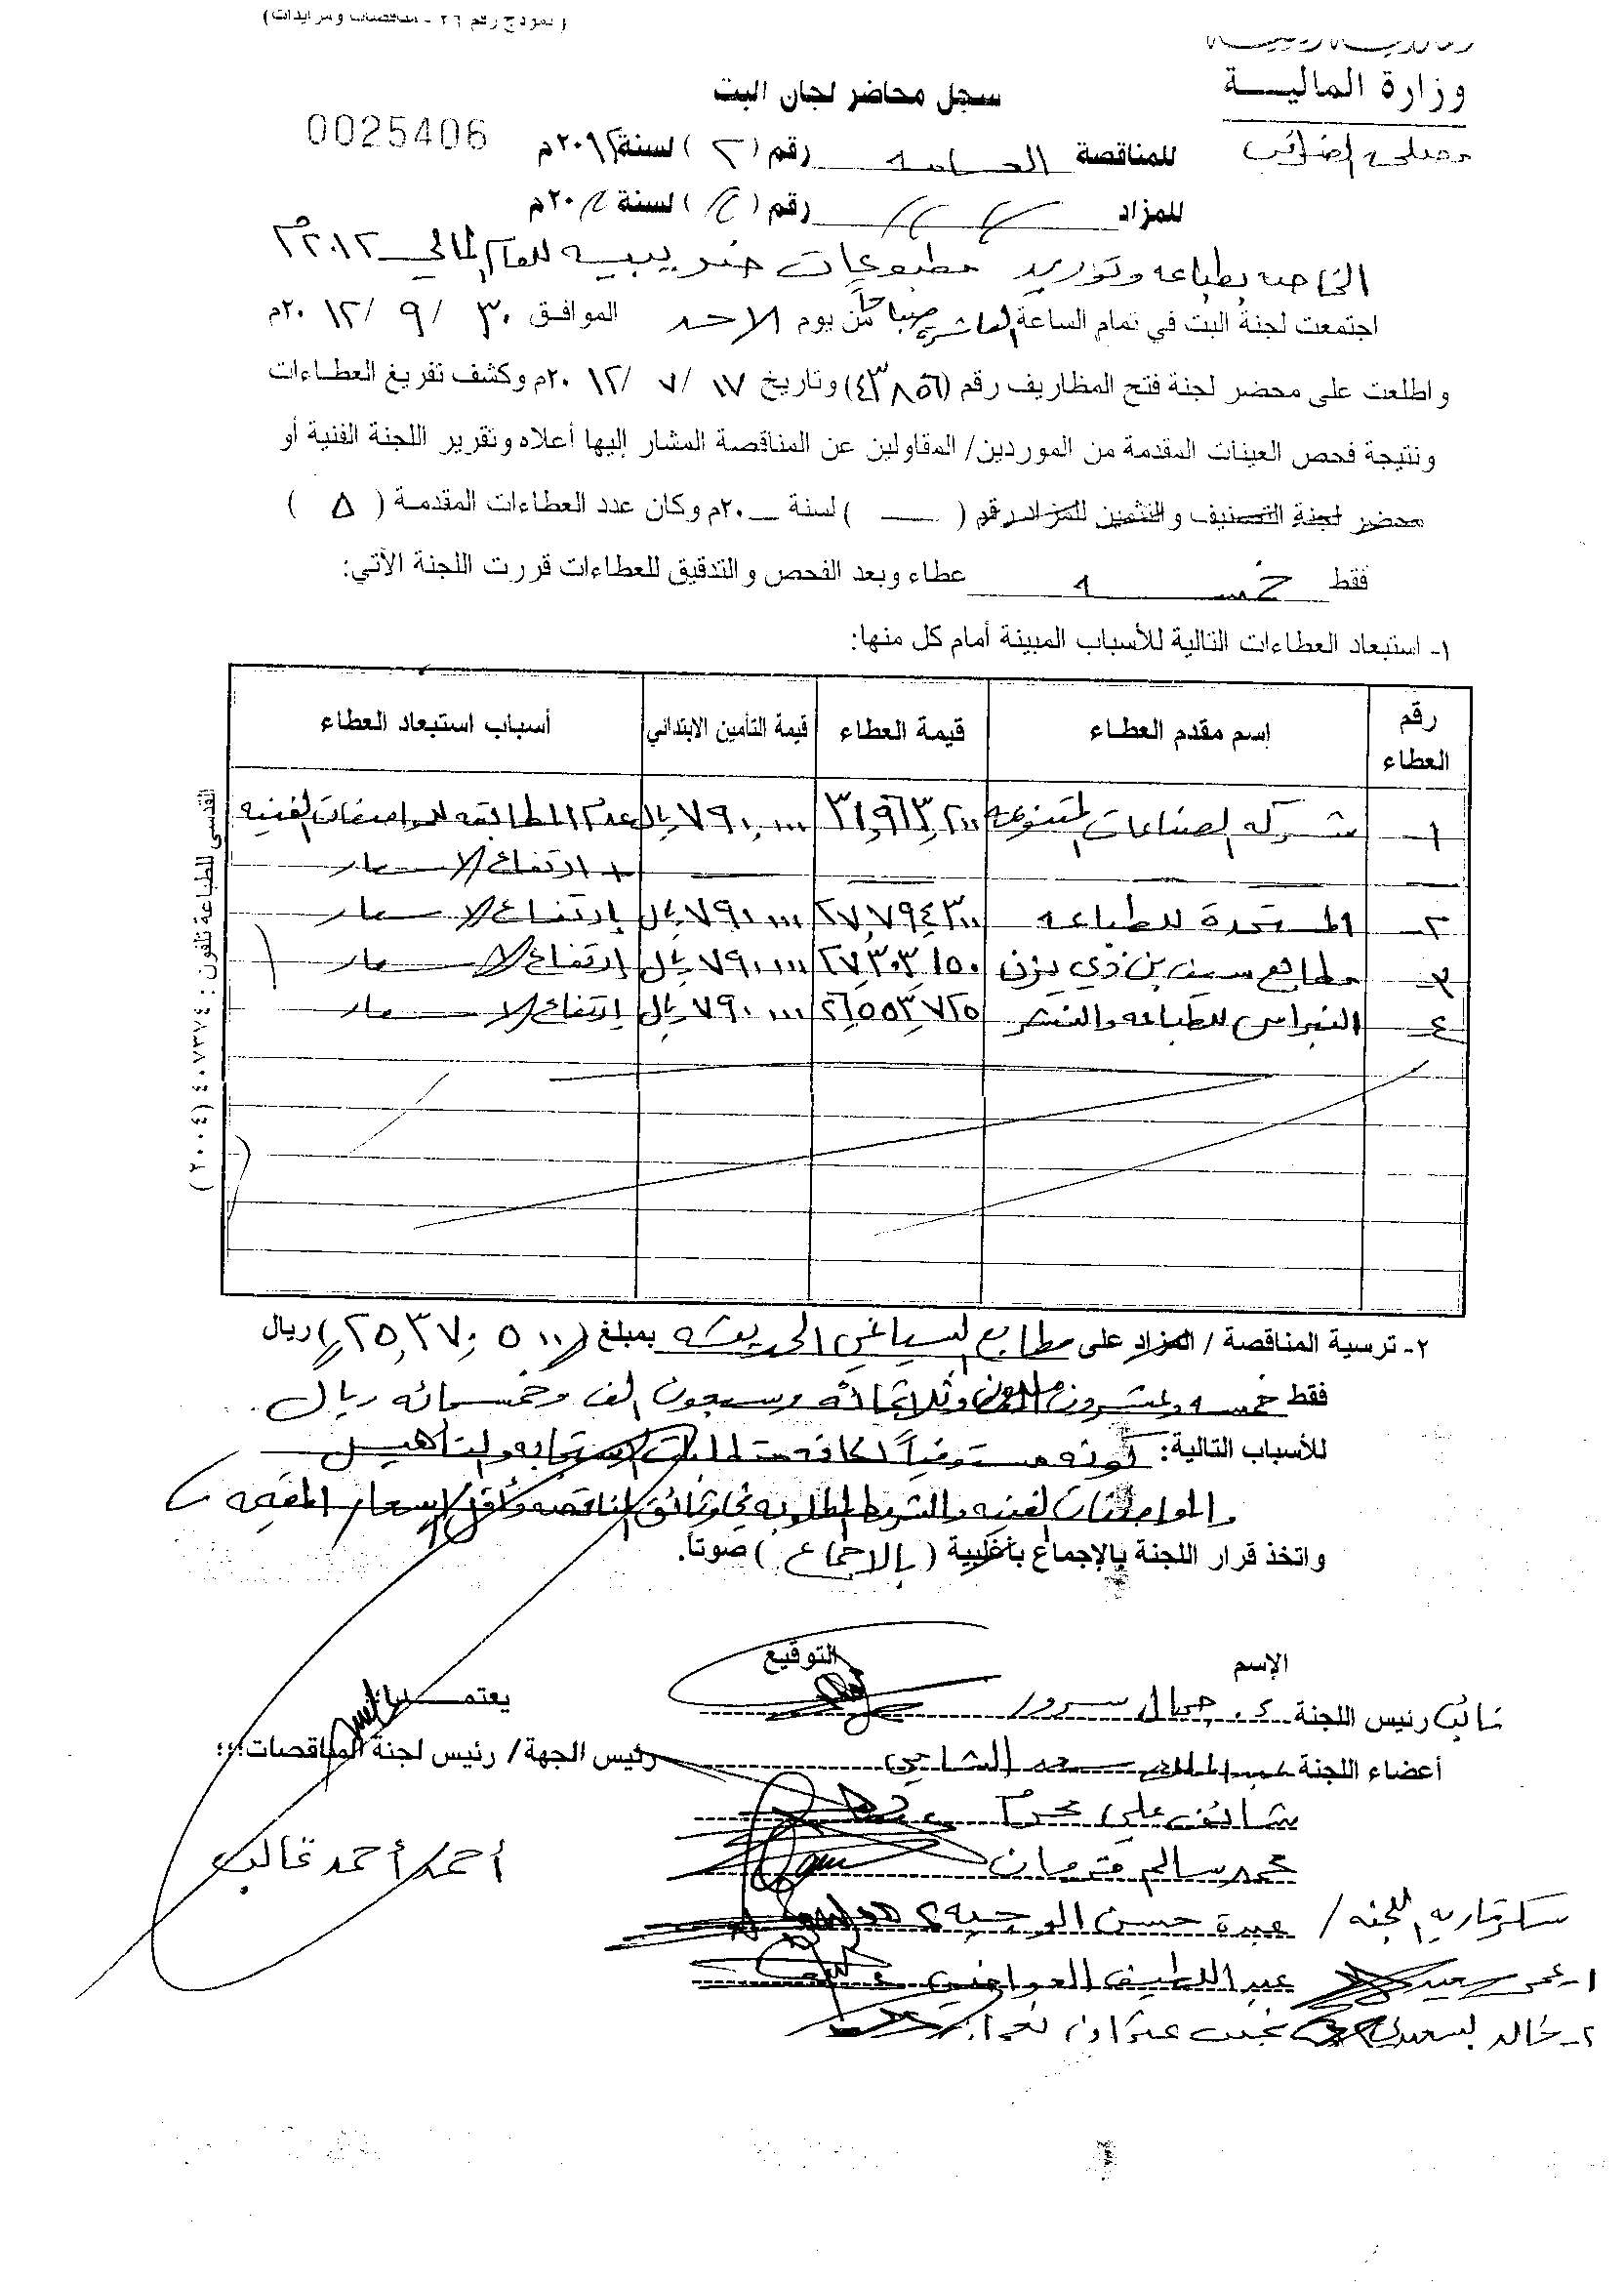 (نموذج رقم ٢٦ - مناقصات ومزايدات)
وزارة المالية
مصلحة الضرائب
سجل محاضر لجان البت
0025406
للمناقصة العامه رقم (٢) لسنة ٢٠١٢م
للمزاد رقم ( ) لسنة ٢٠م
الخاصه بطباعه وتوريد مطبوعات ضريبيه للعام المالي ٢٠١٢م
اجتمعت لجنة البت في تمام الساعة العاشره صباحاً من يوم الاحد الموافق ٣٠ / ٩ / ٢٠١٢م
واطلعت على محضر لجنة فتح المظاريف رقم (٤٣٨٥٦) وتاريخ ١٧ / ٧ / ٢٠١٢م وكشف تفريغ العطاءات
ونتيجة فحص العينات المقدمة من الموردين/ المقاولين عن المناقصة المشار إليها أعلاه وتقرير اللجنة الفنية أو
محضر لجنة التصنيف والتثمين للمزاد رقم ( ــ ) لسنة ــ ٢٠٠م وكان عدد العطاءات المقدمة ( ٥ )
فقط خمسه عطاء وبعد الفحص والتدقيق للعطاءات قررت اللجنة الآتي:
١- استبعاد العطاءات التالية للأسباب المبينة أمام كل منها:
رقم العطاء إسم مقدم العطاء قيمة العطاء قيمة التأمين الابتدائي أسباب استبعاد العطاء
١- شركه الصناعات المتنوعه ٣١,٩٦٣,٢٠٠ ٧٩٠,٠٠٠ ريال عدم المطابقه للمواصفات الفنيه
+ ارتفاع الاسعار
٢- المتحدة للطباعه ٢٧,٧٩٤,٣٠٠ ٧٩٠,٠٠٠ ريال إرتفاع الاسعار
٣- مطابع سيف بن ذي يزن ٢٧,٣٠٣,١٥٠ ٧٩٠,٠٠٠ ريال إرتفاع الاسعار
٤- النبراس للطباعه والنشر ٢٦,٥٥٣,٧٢٥ ٧٩٠,٠٠٠ ريال إرتفاع الاسعار
القدسي للطباعة تلفون : ٤٠٧٣٧٤ (٢٠٠٤)
٢- ترسية المناقصة / المزاد على مطابع السياغي الحديثه بمبلغ (٢٥,٣٧٠,٥٠٠) ريال
فقط خمسه وعشرون مليون وثلاثمائه وسبعون الف وخمسمائه ريال
للأسباب التالية: كونه مستوفياً لكافة متطلبات الاستجابه والتأهيل
والمواصفات الفنيه والشروط المطلوبه في وثائق المناقصه وأقل الاسعار المقيمه
واتخذ قرار اللجنة بالإجماع بأغلبية ( بالاجماع ) صوتاً.
الإسم التوقيع
نائب رئيس اللجنة د. جمال سرور
يعتمد
أعضاء اللجنة سعد الشامي
رئيس الجهة/ رئيس لجنة المناقصات؛؛؛
شائف علي محرم
محمد سالم قترمان
أحمد أحمد غالب
سكرتاريه اللجنه / عبدة حسن الوجيه
١- سعيد عبد اللطيف العواضي
٢- خالد نجيب